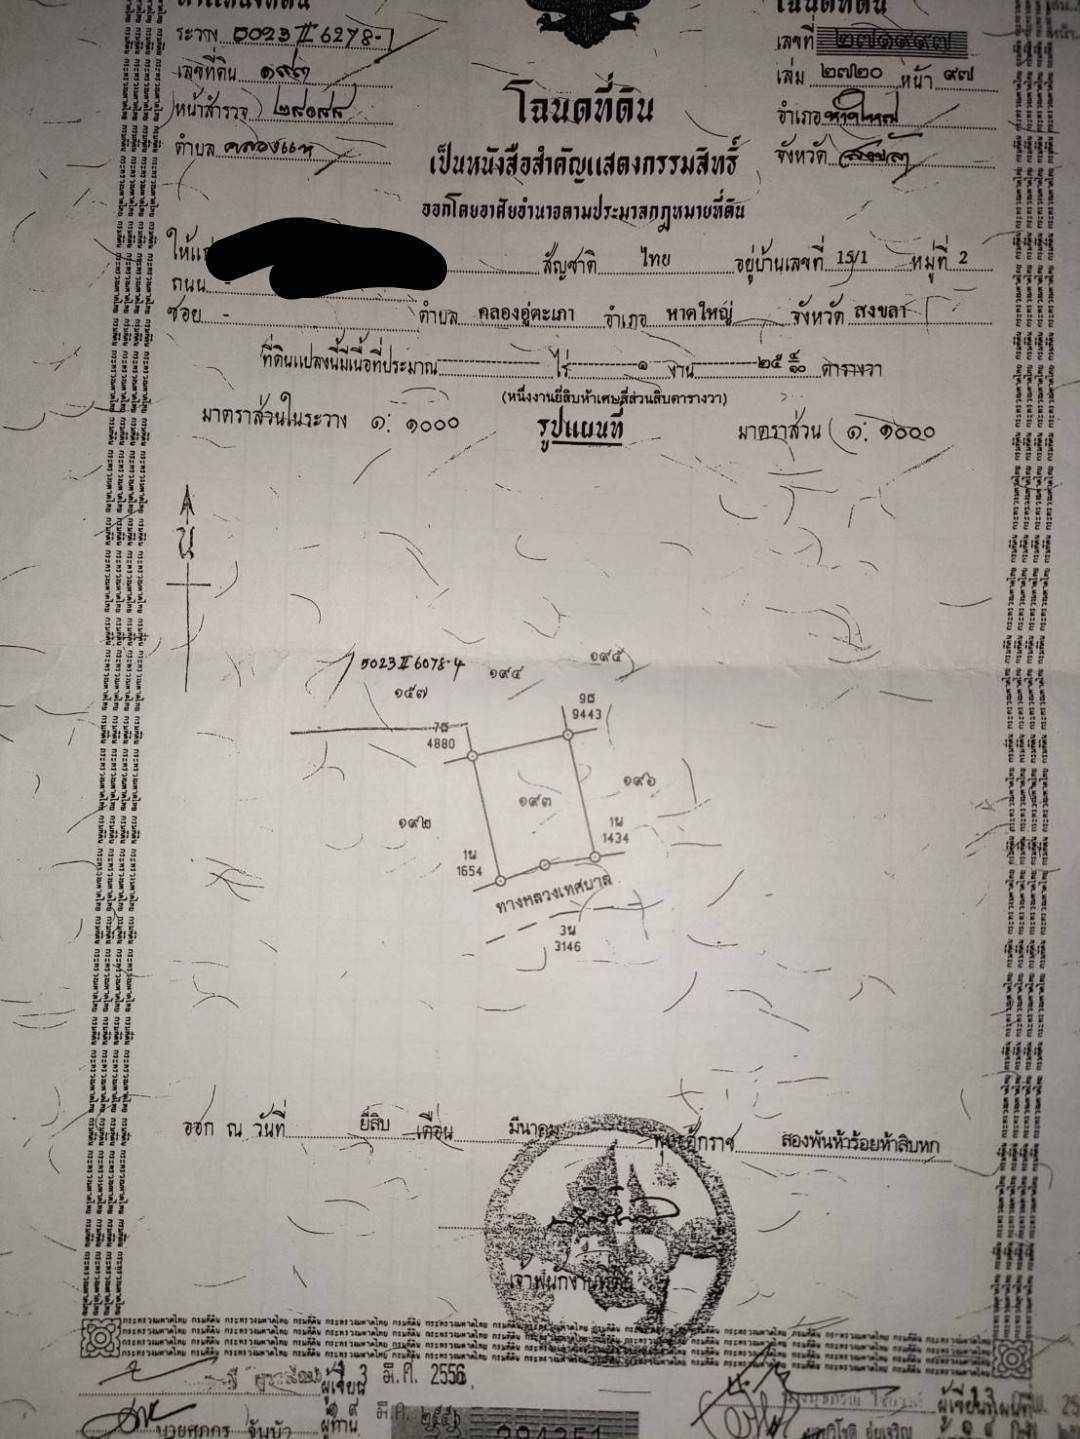 ตำแหน่งที่ดิน
โฉนดที่ดิน
ระวาง 5023 II 6278-1
เลขที่ ๒๗๑๙๙๗
เลขที่ดิน ๑๙๓
เล่ม ๒๗๒๐ หน้า ๙๗
หน้าสำรวจ
อำเภอ หาดใหญ่
ตำบล คลองแห
จังหวัด สงขลา
โฉนดที่ดิน
เป็นหนังสือสำคัญแสดงกรรมสิทธิ์
ออกโดยอาศัยอำนาจตามประมวลกฎหมายที่ดิน
ให้แก่ สัญชาติ ไทย อยู่บ้านเลขที่ 15/1 หมู่ที่ 2
ถนน -
ซอย - ตำบล คลองอู่ตะเภา อำเภอ หาดใหญ่ จังหวัด สงขลา
ที่ดินแปลงนี้มีเนื้อที่ประมาณ ไร่ ๑ งาน ๒๕ ๔/๑๐ ตารางวา
(หนึ่งงานยี่สิบห้าเศษสี่ส่วนสิบตารางวา)
มาตราส่วนในระวาง ๑: ๑๐๐๐
รูปแผนที่
มาตราส่วน ๑: ๑๐๐๐
น
5023 II 6078-4
๑๙๔
๑๙๕
๑๕๗
9ธ
9443
7ธ
4880
๑๙๓
๑๙๖
๑๙๒
1น
1434
1น
1654
ทางหลวงเทศบาล
3น
3146
ออก ณ วันที่ ยี่สิบ เดือน มีนาคม พุทธศักราช สองพันห้าร้อยห้าสิบหก
เจ้าพนักงานที่ดิน
ผู้เขียน 13 มี.ค. 2556
ผู้เขียนแผนที่
นายศภกร จันบัว ผู้ทาน มี.ค. ๒๕๕๖